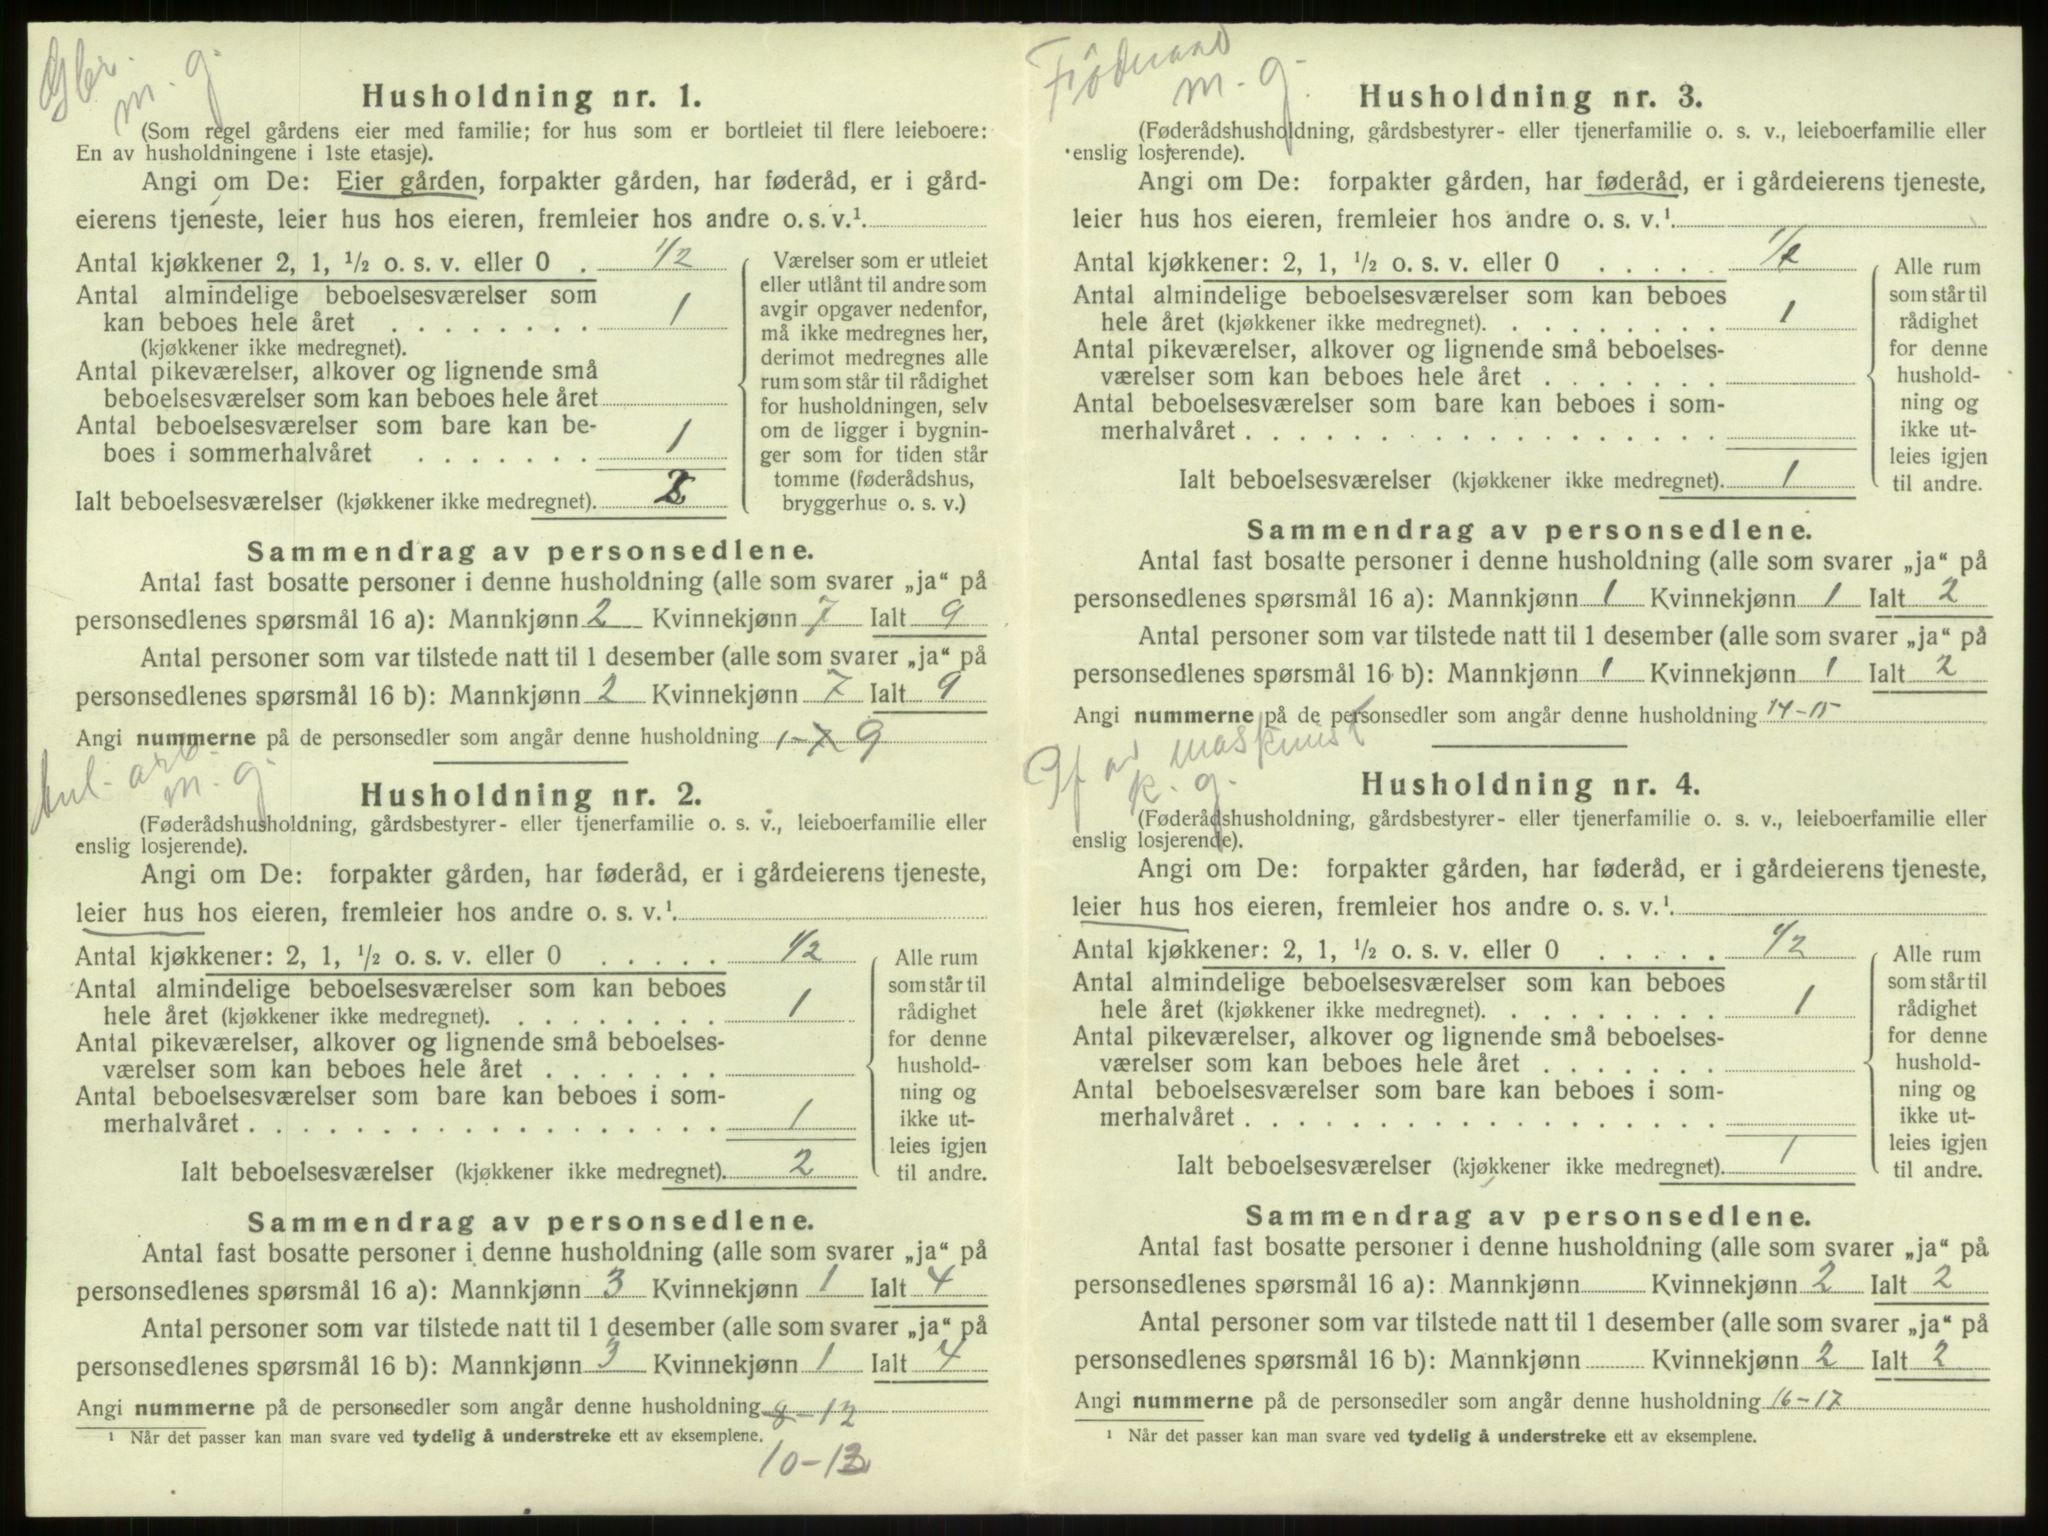 Gbr.
m. g.
Husholdning nr. 1.
(Som regel gårdens eier med familie; for hus som er bortleiet til flere leieboere:
En av husholdningene i 1ste etasje).
Angi om De: Eier gården, forpakter gården, har føderåd, er i gård-
eierens tjeneste, leier hus hos eieren, fremleier hos andre o. s. v.¹
Antal kjøkkener 2, 1, ½ o. s. v. eller 0 . 1/2
Antal almindelige beboelsesværelser som
kan beboes hele året . . . . . . . . 1
(kjøkkener ikke medregnet).
Antal pikeværelser, alkover og lignende små
beboelsesværelser som kan beboes hele året
Antal beboelsesværelser som bare kan be-
boes i sommerhalvåret . . . . . . . 1
Ialt beboelsesværelser (kjøkkener ikke medregnet). 2
Værelser som er utleiet
eller utlånt til andre som
avgir opgaver nedenfor,
må ikke medregnes her,
derimot medregnes alle
rum som står til rådighet
for husholdningen, selv
om de ligger i bygnin-
ger som for tiden står
tomme (føderådshus,
bryggerhus o. s. v.)
Sammendrag av personsedlene.
Antal fast bosatte personer i denne husholdning (alle som svarer „ja“ på
personsedlenes spørsmål 16 a): Mannkjønn 2 Kvinnekjønn 7 Ialt 9
Antal personer som var tilstede natt til 1 desember (alle som svarer „ja“ på
personsedlenes spørsmål 16 b): Mannkjønn 2 Kvinnekjønn 7 Ialt 9
Angi nummerne på de personsedler som angår denne husholdning 1-7 9
m. g.
Husholdning nr. 2.
(Føderådshusholdning, gårdsbestyrer- eller tjenerfamilie o. s. v., leieboerfamilie eller
enslig losjerende).
Angi om De: forpakter gården, har føderåd, er i gårdeierens tjeneste,
leier hus hos eieren, fremleier hos andre o. s. v.¹
Antal kjøkkener: 2, 1, ½ o. s. v. eller 0 . . . . . 1/2
Antal almindelige beboelsesværelser som kan beboes
hele året (kjøkkener ikke medregnet). . . . . . . . . 1
Antal pikeværelser, alkover og lignende små beboelses-
værelser som kan beboes hele året . . . . . . .
Antal beboelsesværelser som bare kan beboes i som-
merhalvåret . . . . . . . . . . . . . . . . . . 1
Ialt beboelsesværelser (kjøkkener ikke medregnet). 2
Alle rum
som står til
rådighet
for denne
hushold-
ning og
ikke ut-
leies igjen
til andre.
Sammendrag av personsedlene.
Antal fast bosatte personer i denne husholdning (alle som svarer „ja“ på
personsedlenes spørsmål 16 a): Mannkjønn 3 Kvinnekjønn 1 Ialt 4
Antal personer som var tilstede natt til 1 desember (alle som svarer „ja“ på
personsedlenes spørsmål 16 b): Mannkjønn 3 Kvinnekjønn 1 Ialt 4
Angi nummerne på de personsedler som angår denne husholdning 8-12
¹ Når det passer kan man svare ved tydelig å understreke ett av eksemplene.
10-13
Føderaad
m. g.
Husholdning nr. 3.
(Føderådshusholdning, gårdsbestyrer- eller tjenerfamilie o. s. v., leieboerfamilie eller
enslig losjerende).
Angi om De: forpakter gården, har føderåd, er i gårdeierens tjeneste,
leier hus hos eieren, fremleier hos andre o. s. v.¹
Antal kjøkkener: 2, 1, ½ o. s. v. eller 0 . . . . . 1/2
Antal almindelige beboelsesværelser som kan beboes
hele året (kjøkkener ikke medregnet). . . . . . . . . 1
Antal pikeværelser, alkover og lignende små beboelses-
værelser som kan beboes hele året . . . . . . .
Antal beboelsesværelser som bare kan beboes i som-
merhalvåret . . . . . . . . . . . . . . . . . .
Ialt beboelsesværelser (kjøkkener ikke medregnet). 1
Alle rum
som står til
rådighet
for denne
hushold-
ning og
ikke ut-
leies igjen
til andre.
Sammendrag av personsedlene.
Antal fast bosatte personer i denne husholdning (alle som svarer „ja“ på
personsedlenes spørsmål 16 a): Mannkjønn 1 Kvinnekjønn 1 Ialt 2
Antal personer som var tilstede natt til 1 desember (alle som svarer „ja“ på
personsedlenes spørsmål 16 b): Mannkjønn 1 Kvinnekjønn 1 Ialt 2
Angi nummerne på de personsedler som angår denne husholdning 14-15
Gf av maskinist
k. g.
Husholdning nr. 4.
(Føderådshusholdning, gårdsbestyrer- eller tjenerfamilie o. s. v., leieboerfamilie eller
enslig losjerende).
Angi om De: forpakter gården, har føderåd, er i gårdeierens tjeneste,
leier hus hos eieren, fremleier hos andre o. s. v.¹
Antal kjøkkener: 2, 1, ½ o. s. v. eller 0 . . . . . 1/2
Antal almindelige beboelsesværelser som kan beboes
hele året (kjøkkener ikke medregnet). . . . . . . . . 1
Antal pikeværelser, alkover og lignende små beboelses-
værelser som kan beboes hele året . . . . . . .
Antal beboelsesværelser som bare kan beboes i som-
merhalvåret . . . . . . . . . . . . . . . . . .
Ialt beboelsesværelser (kjøkkener ikke medregnet). 1
Alle rum
som står til
rådighet
for denne
hushold-
ning og
ikke ut-
leies igjen
til andre.
Sammendrag av personsedlene.
Antal fast bosatte personer i denne husholdning (alle som svarer „ja“ på
personsedlenes spørsmål 16 a): Mannkjønn Kvinnekjønn 2 Ialt 2
Antal personer som var tilstede natt til 1 desember (alle som svarer „ja“ på
personsedlenes spørsmål 16 b): Mannkjønn Kvinnekjønn 2 Ialt 2
Angi nummerne på de personsedler som angår denne husholdning 16-17
¹ Når det passer kan man svare ved tydelig å understreke ett av eksemplene.